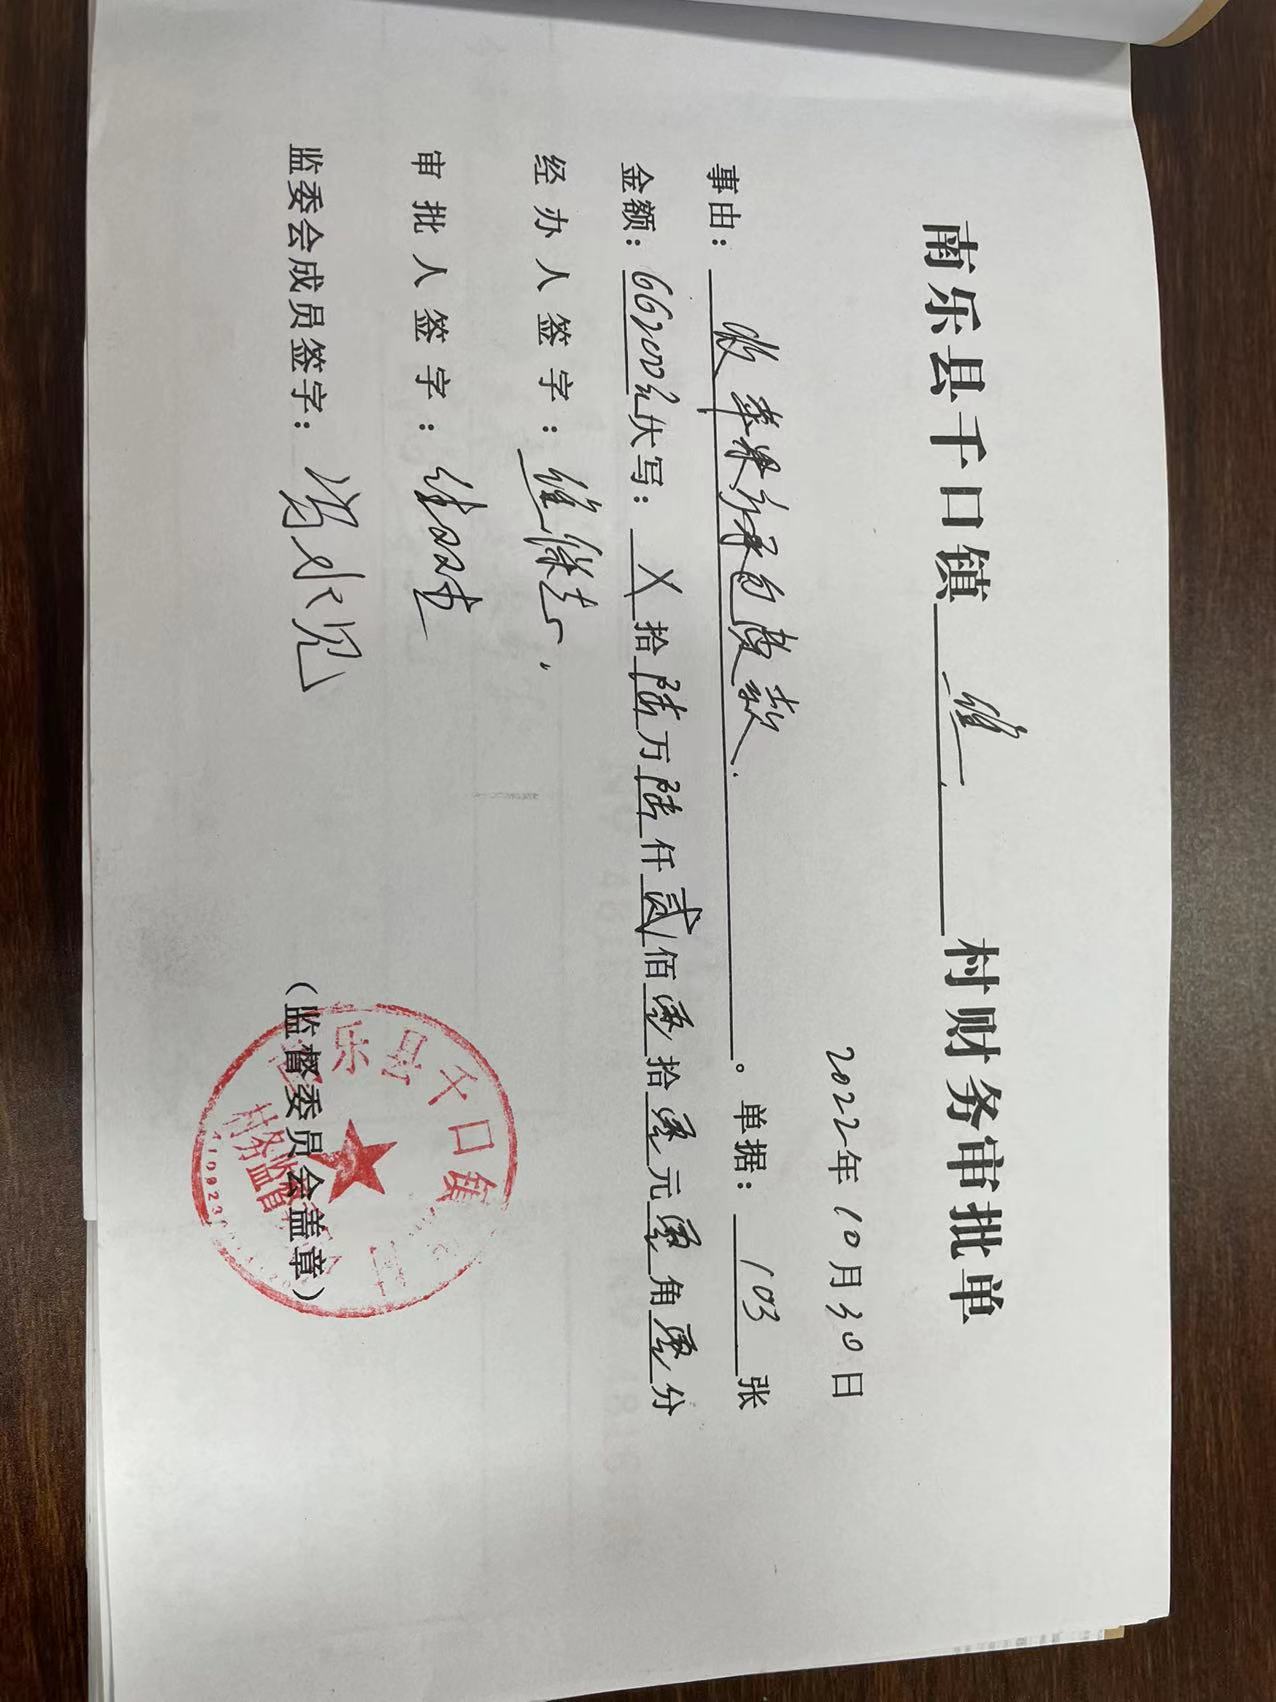 南乐县千口镇 村财务审批单
2022年10月30日
事由：收苹果方承包费款. 。单据：103张
金额：66200元大写：X拾陆万陆仟贰佰零拾零元零角零分
经办人签字：
审批人签字：
监委会成员签字：
（监督委员会盖章）
乐县千口镇
村务监督